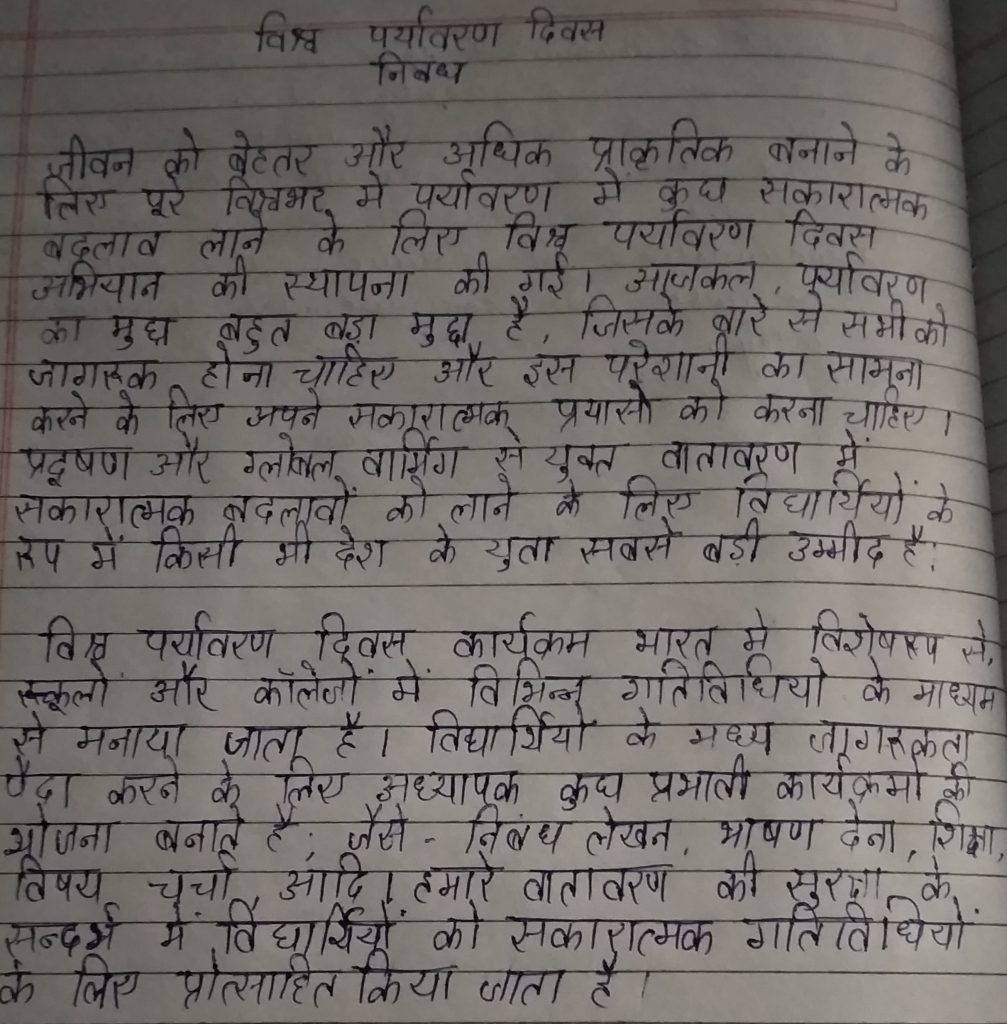 विश्व पर्यावरण दिवस
निबंध
जीवन को बेहतर और अधिक प्राकृतिक बनाने के
लिए पूरे विश्वभर मे पर्यावरण में कुछ सकारात्मक
बदलाव लाने के लिए विश्व पर्यावरण दिवस
अभियान की स्थापना की गई। आजकल, पर्यावरण
का मुद्दा बहुत बड़ा मुद्दा है, जिसके बारे से सभी को
जागरूक होना चाहिए और इस परेशानी का सामना
करने के लिए अपने सकारात्मक प्रयासो को करना चाहिए।
प्रदूषण और ग्लोबल वार्मिंग से युक्त वातावरण में
सकारात्मक बदलावों को लाने के लिए विद्यार्थियों के
रूप में किसी भी देश के युवा सबसे बड़ी उम्मीद है:
विश्व पर्यावरण दिवस कार्यक्रम भारत मे विशेषरूप से,
स्कूलों और कॉलेजों में विभिन्न गतिविधियो के माध्यम
से मनाया जाता है। विद्यार्थियों के मध्य जागरूकता
पैदा करने के लिए अध्यापक कुछ प्रभावी कार्यक्रमों की
योजना बनाते है; जैसे - निबंध लेखन, भाषण देना, शिक्षा,
विषय चर्चा, आदि। हमारे वातावरण की सुरक्षा के
सन्दर्भ में विद्यार्थियों को सकारात्मक गतिविधियों
के लिए प्रोत्साहित किया जाता है।